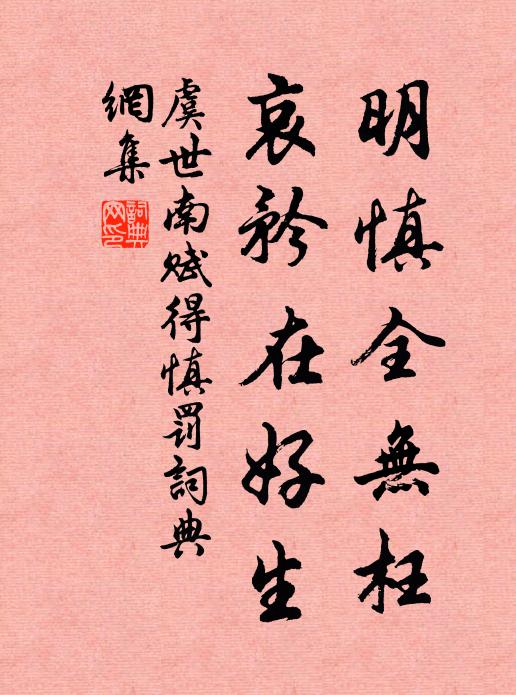 明慎全無枉
哀矜在好生
虞世南賦得慎罰詞典
網集
詞典
网印